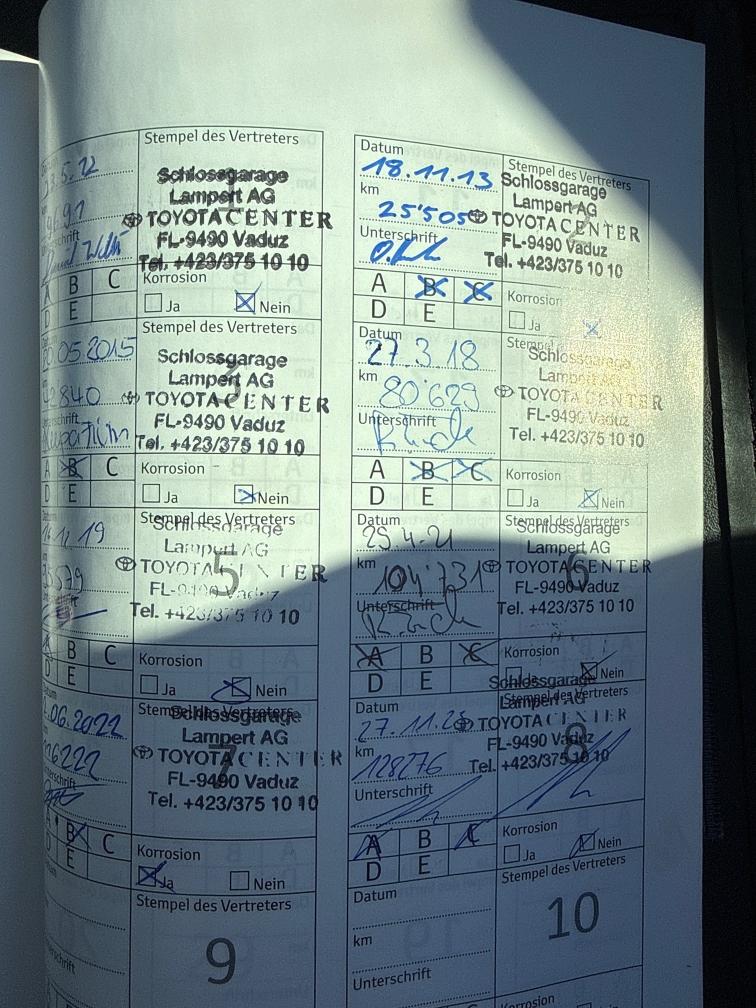 Stempel des Vertreters
.5.12
1
Schlossgarage
Lampert AG
TOYOTA CENTER
FL-9490 Vaduz
Tel. +423/375 10 10
B C
Korrosion
D E
Ja Nein
Datum
18.11.13
Stempel des Vertreters
km
25'505
Schlossgarage
Lampert AG
TOYOTA CENTER
FL-9490 Vaduz
Tel. +423/375 10 10
Unterschrift
A B C
Korrosion
D E
Ja
Stempel des Vertreters
.05.2015
3
Schlossgarage
Lampert AG
TOYOTA CENTER
FL-9490 Vaduz
Tel. +423/375 10 10
2840
B C
Korrosion
D E
Ja Nein
Datum
27.3.18
km
80'629
Schlossgarage
Lampert AG
TOYOTA CENTER
FL-9490 Vaduz
Tel. +423/375 10 10
Unterschrift
A B C
Korrosion
D E
Ja Nein
Stempel des Vertreters
12.19
5
Schlossgarage
Lampert AG
TOYOTA CENTER
FL-9490 Vaduz
Tel. +423/375 10 10
B C
Korrosion
D E
Ja Nein
Datum
Stempel des Vertreters
4.21
km
104'731
6
Schlossgarage
Lampert AG
TOYOTA CENTER
FL-9490 Vaduz
Tel. +423/375 10 10
Unterschrift
A B C
Korrosion
D E
Nein
Datum
Stempel des Vertreters
.06.2022
7
Schlossgarage
Lampert AG
TOYOTA CENTER
FL-9490 Vaduz
Tel. +423/375 10 10
6222
A B C
Korrosion
D E
Ja Nein
Datum
Stempel des Vertreters
27.11.
km
128276
8
Schlossgarage
Lampert AG
TOYOTA CENTER
FL-9490 Vaduz
Tel. +423/375 10 10
Unterschrift
A B C
Korrosion
D E
Ja Nein
Stempel des Vertreters
9
Datum
Stempel des Vertreters
km
10
Unterschrift
Korrosion